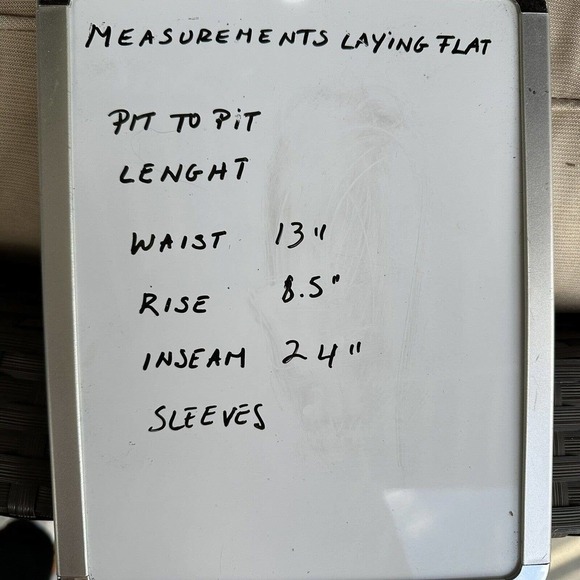 MEASUREMENTS LAYING FLAT
PIT TO PIT
LENGHT
WAIST 13"
RISE 8.5"
INSEAM 24"
SLEEVES